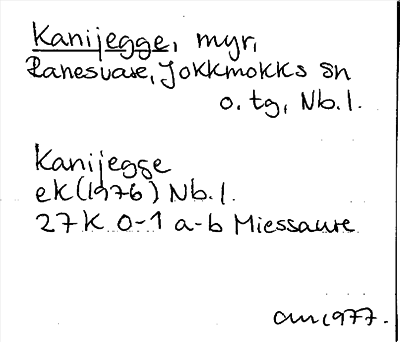 Kanijegge, myr,
Ranesvare, Jokkmokks sn
o. tg, Nb.l.
Kanijegge
ek (1976) Nb.l.
27 K 0-1 a-b Miessaure
1977.